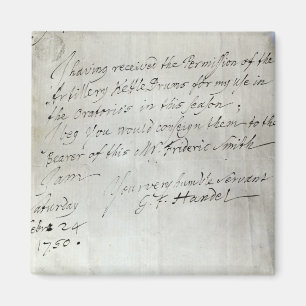 I having received the Permission of the
Artillery Kettle Drums for my use in
the Oratorio's in this season;
I beg you would consign them to the
Bearer of this Mr. Frideric Smith
I am
Your very humble servant
G. F. Handel
Saturday
Febr: 24
1750.